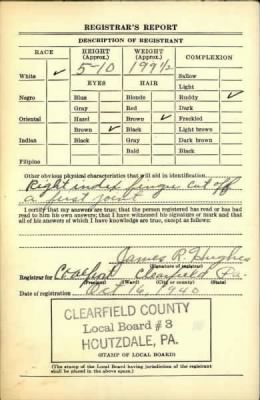 REGISTRAR'S REPORT
DESCRIPTION OF REGISTRANT
RACE HEIGHT (Approx.) WEIGHT (Approx.) COMPLEXION
5-10 199½
White ✓ Sallow
EYES HAIR Light
Negro Blue Blonde Ruddy ✓
Gray Red Dark
Oriental Hazel Brown ✓ Freckled
Brown ✓ Black Light brown
Indian Black Gray Dark brown
Bald Black
Filipino
Other obvious physical characteristics that will aid in identification
Right index finger cut off
at first joint
I certify that my answers are true; that the person registered has read or has had
read to him his own answers; that I have witnessed his signature or mark and that
all of his answers of which I have knowledge are true, except as follows:
James R. Hughes
(Signature of registrar)
Registrar for Clearfield Pa.
(Precinct) (Ward) (City or county) (State)
Date of registration Oct 16, 1940
CLEARFIELD COUNTY
Local Board #3
HOUTZDALE, PA.
(STAMP OF LOCAL BOARD)
(The stamp of the Local Board having jurisdiction of the registrant
shall be placed in the above space.)